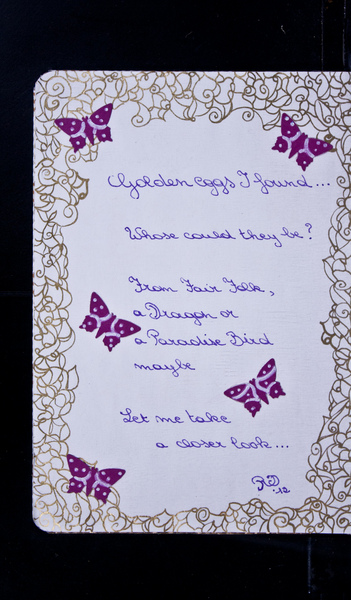 Golden eggs I found...
Whose could they be?
From Fair Folk,
a Dragon or
a Paradise Bird
maybe
Let me take
a closer look...
'12